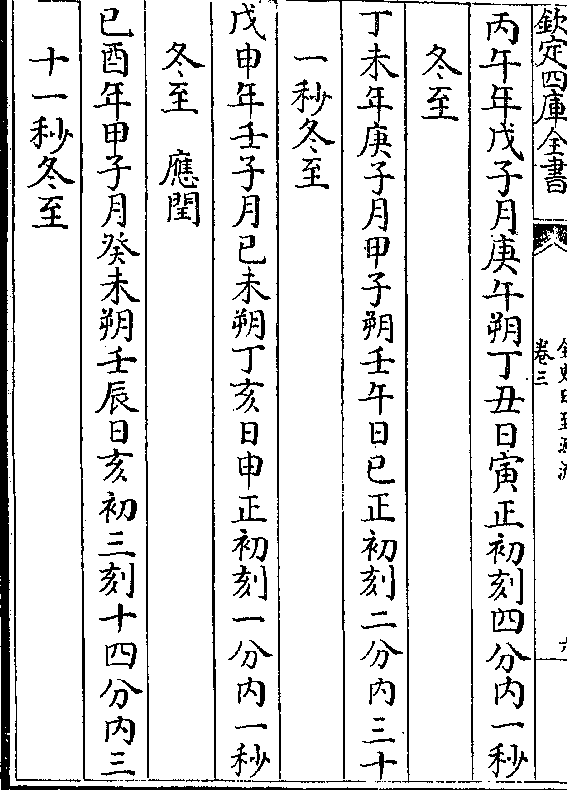 欽定四庫全書
卷三
丙午年戊子月庚午朔丁丑日寅正初刻四分内一秒
冬至
丁未年庚子月甲子朔壬午日巳正初刻二分内三十
一秒冬至
戊申年壬子月巳未朔丁亥日申正初刻一分内一秒
冬至 應閏
巳酉年甲子月癸未朔壬辰日亥初三刻十四分内三
十一秒冬至